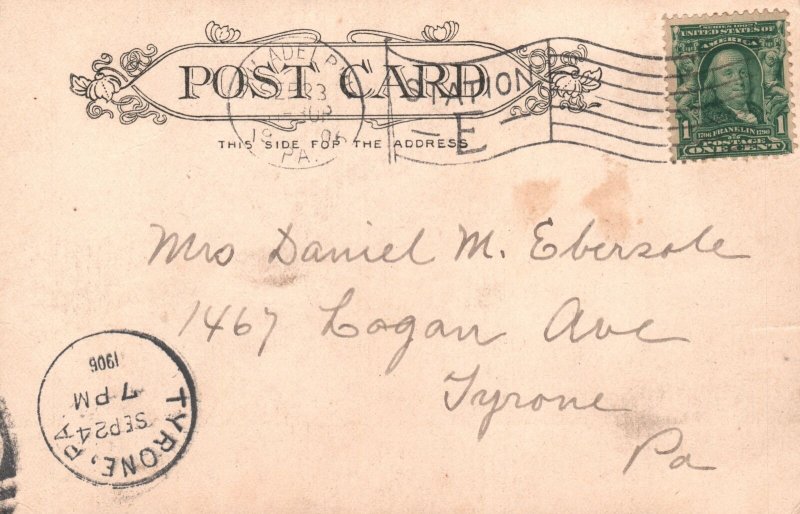 POST CARD
THIS SIDE FOR THE ADDRESS
STATION
E
PA.
SERIES 1902
UNITED STATES OF
AMERICA
1706 FRANKLIN 1790
POSTAGE
1 ONE CENT
Mrs Daniel M. Ebersole
1467 Logan Ave
Tyrone
Pa
TYRONE, PA
SEP 24
7 PM
1906